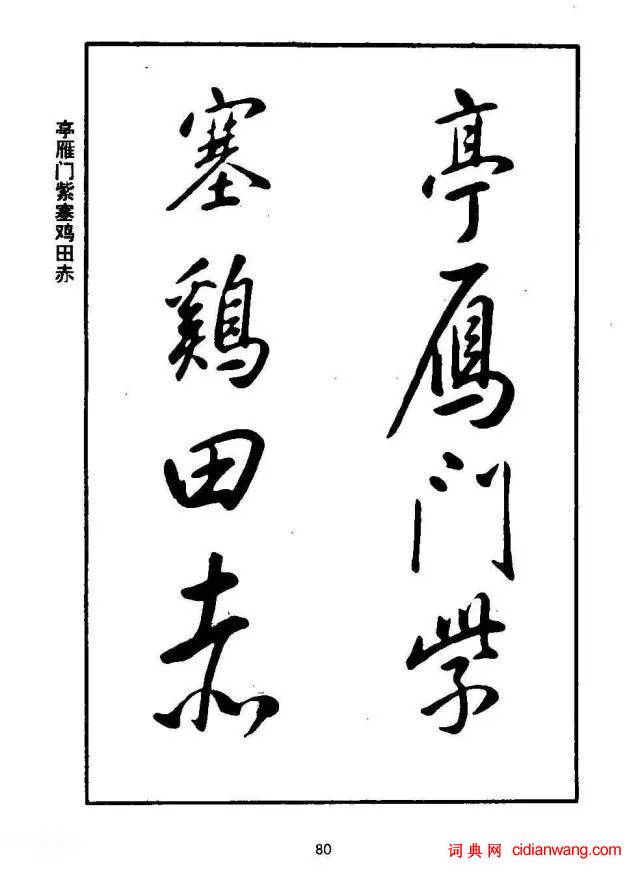 亭雁門紫
塞鷄田赤
亭雁门紫塞鸡田赤
80
词典网 cidianwang.com